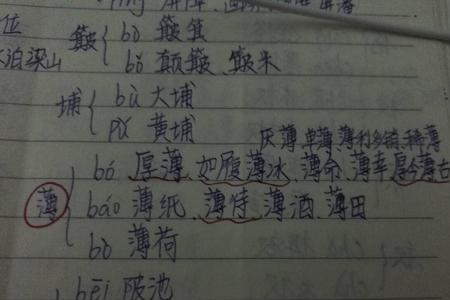 屏障
位 簸 bò 簸箕
泊梁山 bǒ 颠簸、簸米
埔 bù 大埔
pǔ 黄埔
厌薄 单薄 薄利多销、稀薄
薄 bó 厚薄、如履薄冰、薄命、薄幸 厚今薄古
báo 薄纸、薄待、薄酒、薄田
bò 薄荷
bēi 陂池